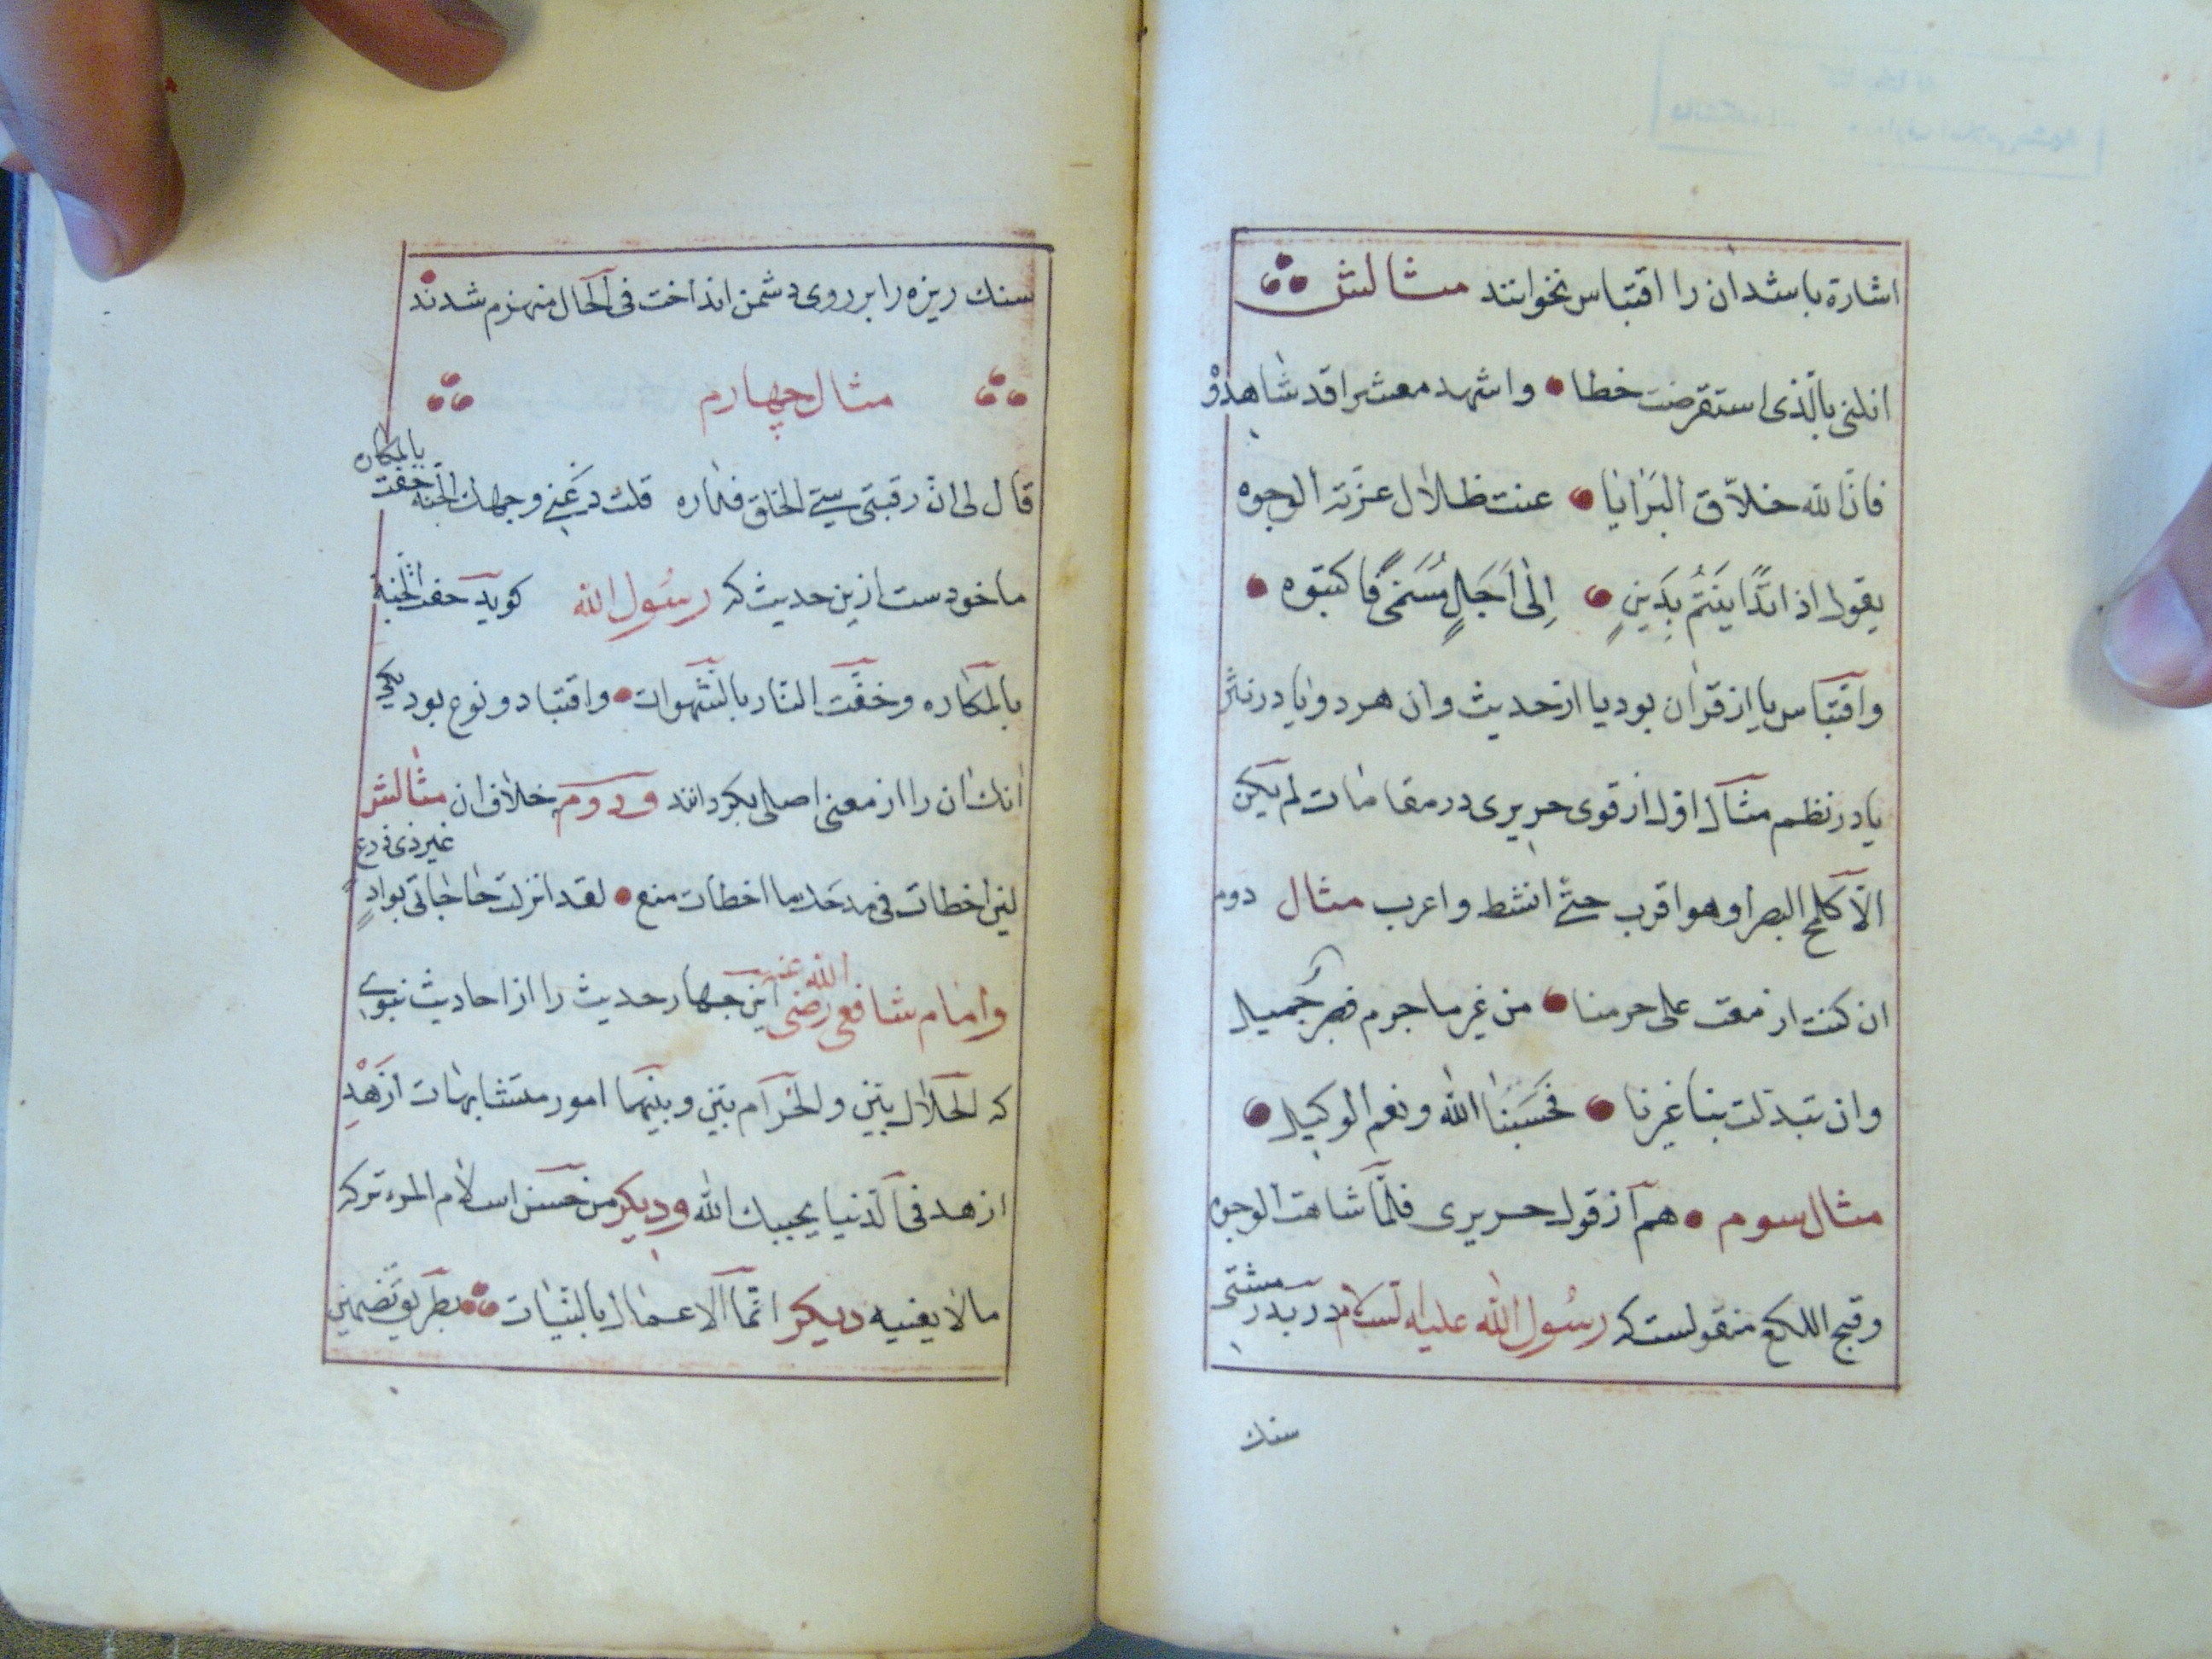 اشارة باشد ان را اقتباس نخوانند مثالش
انلنی بالذی استقرضت خطا واشهد معشرا قد شاهدوْ
فان الله خلاّق البَرَایا عنت ظلال عزّته الوجوه
یقول اذا تداینتم بِدَینٍ اِلٰی اَجَلٍ مُسَمیً فاکتبوه
واقتباس یا از قران بود یا از حدیث وان هر دو یا در نثر
یا در نظم مثال اول از قوی حریری در مقامات لم یکن
الّا کلمح البصر او هو اقرب حتّی انشط واعرب مثال دوم
ان کنت ازمعت علی حرمنا من غیر ما جرم فصبر جمیل
وان تبدلت بنا غیرنا فَحَسبُنا الله ونعم الوکیل
مثال سوم هم از قول حریری فلمّا شاهت الوجوه
وقبح اللکع منقولست که رسُول الله علیه لسلام در بدر مشتی
سنك
سنك ریزه را بر روی دشمن انداخت فی الحال منهزم شدند
مثال چهارم
قال لی انّ رقیبی سیّئ الخلق فداره قلت دعنی وجهك الجنه حفت بالمکاره
ماخودست ازین حدیث که رسُول الله کوید حفت الجنة
بالمکاره وخفّت النار بالشهوات واقتبا دو نوع بود یکی
انك ان را از معنی اصلی بکردانند ودوم خلاف ان مثالش
لئن اخطات فی مدحك ما اخطات منع لقد انزلت حاجاتی بوادٍ غیر ذی زرع
وامام شافعی رضی الله عنه این چهار حدیث را از احادیث نبوی
که الحلال بیّن والحرام بیّن وبینهما امور متشابهات ازهد
ازهد فی الدنیا یحببك الله ودیکر من حسن اسلام المرء ترکه
مالا یعنیه دیکر انّما الاعمال بالنیّات بطریق تضمین